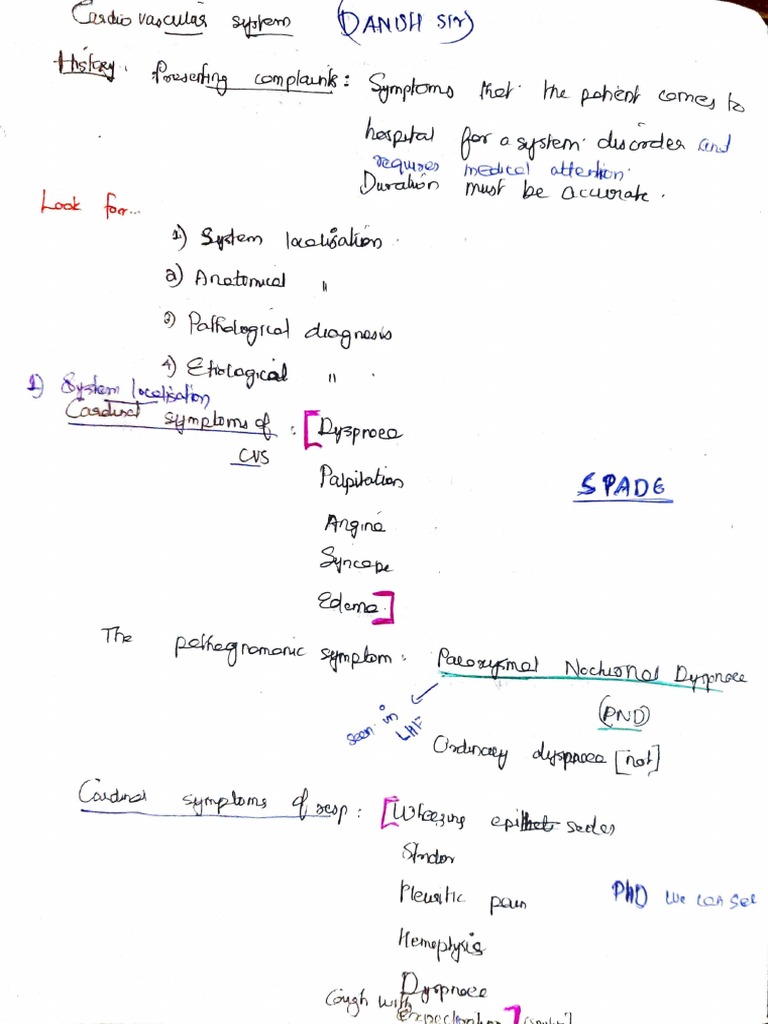 Cardio vascular system (DANISH SIR)
History. Presenting complaints: Symptoms that the patient comes to
hospital for a system disorder and
requires medical attention.
Duration must be accurate.
Look for...
1) System localisation
2) Anatomical "
3) Pathological diagnosis
4) Etiological "
1) System localisation
Cardinal symptoms of CVS : [Dyspnoea
Palpitation
SPADE
Angina
Syncope
Edema]
The pathognomonic symptom: Paroxysmal Nocturnal Dyspnoea
(PND)
seen in LHF
Ordinary dyspnoea [not]
Cardinal symptoms of resp: [Wheezing
Stridor
Pleuritic pain
PhD we can see
Hemoptysis
Dyspnoea
Cough with
Expectoration]